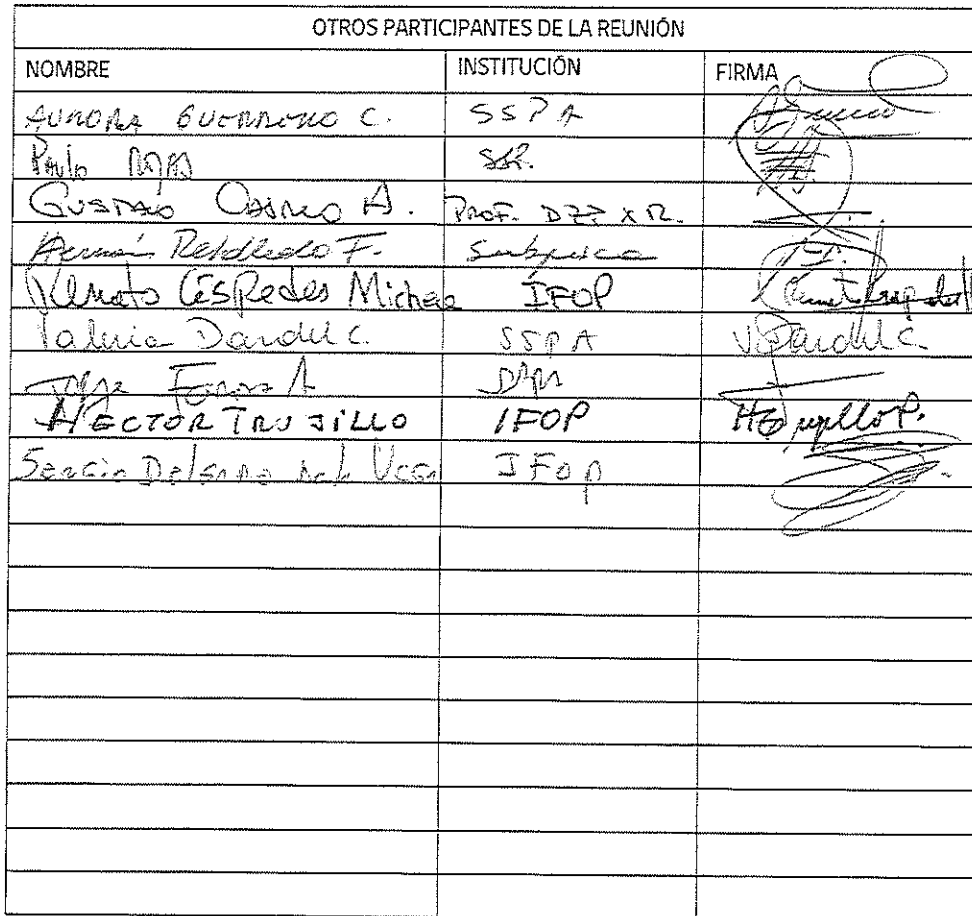 OTROS PARTICIPANTES DE LA REUNIÓN
NOMBRE INSTITUCIÓN FIRMA
AURORA GUERRERO C. SSPA
Paulo
GUSTAVO CASTRO A. PROF. DZP X R.
Hernán Rebolledo F. Subpesca
Renato Céspedes Michea IFOP
Valeria Dardel C. SSPA V Dardel C
Jorge Farías A
HECTOR TRUJILLO IFOP HTrujillo P.
Sergio Delgado IFOP